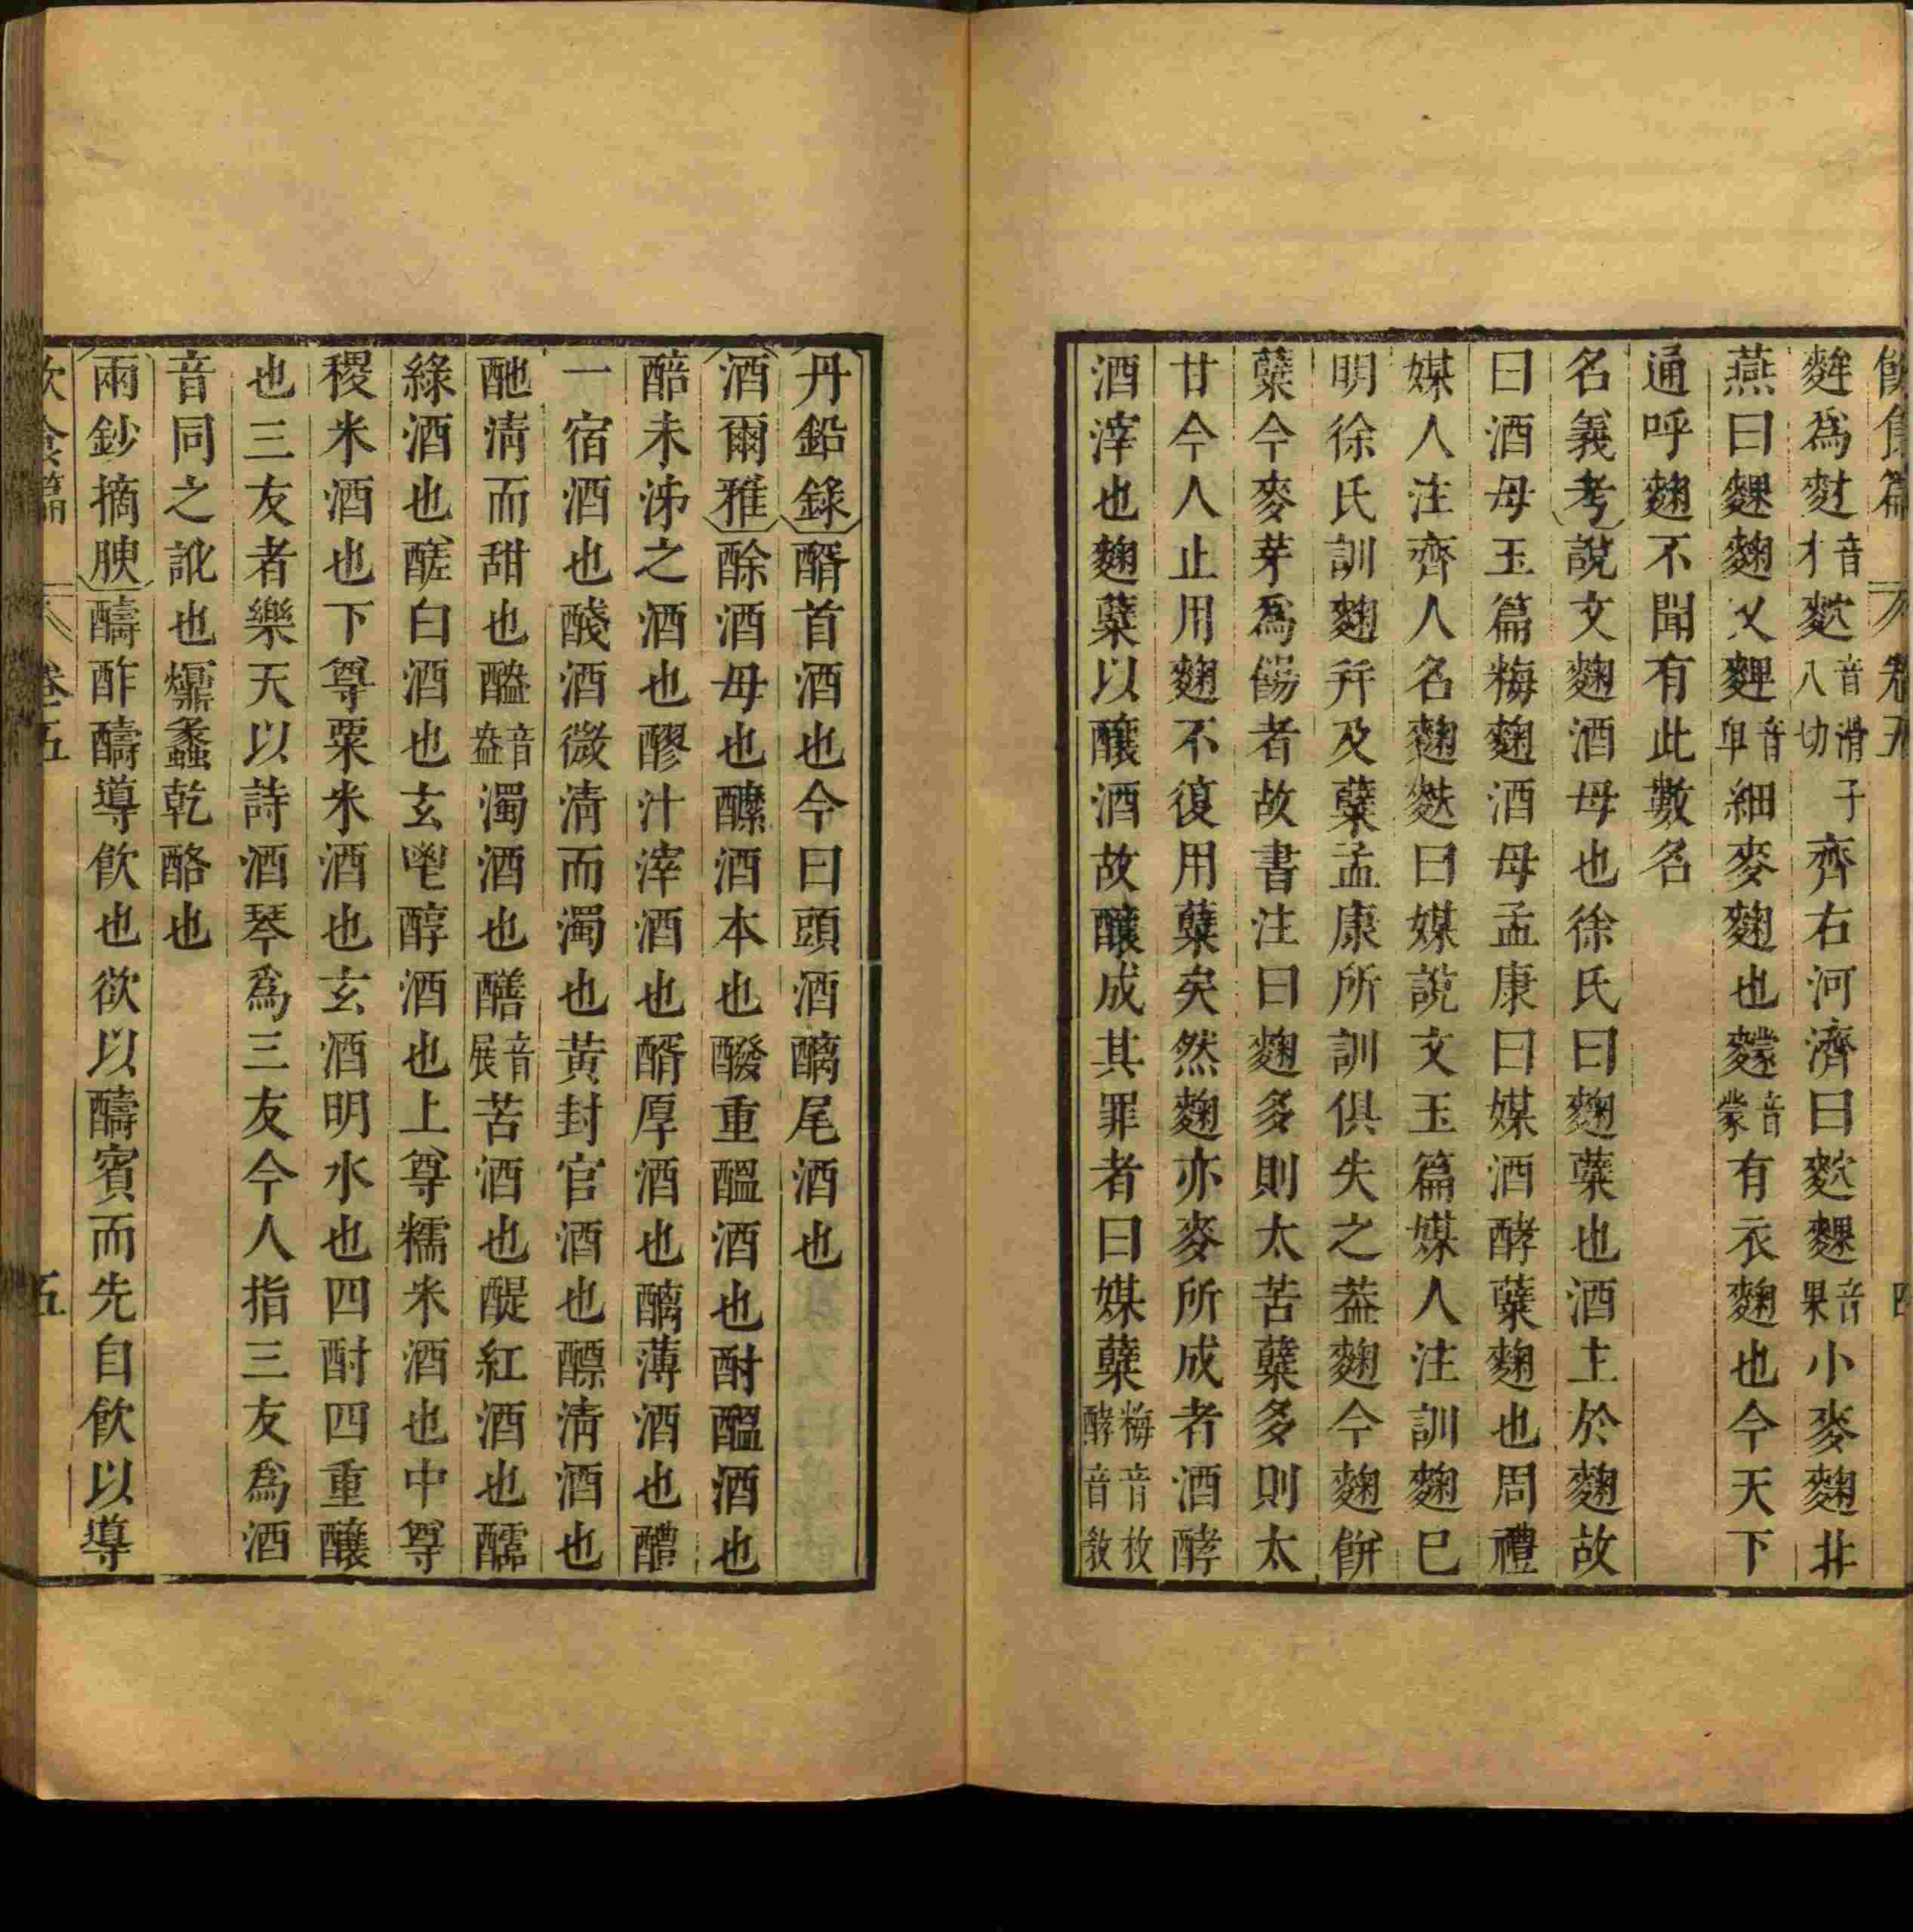 飲食篇 卷五 四
麰爲䴭音才䴬音滑八切子齊右河濟曰䴬䴹音果小麥麴北
燕曰䴹麴乂䴽音卑細麥麴也䴿音蒙有衣麴也今天下
通呼麴不聞有此數名
名義考說文麴酒母也徐氏曰麴櫱也酒主於麴故
曰酒母玉篇梅麴酒母孟康曰媒酒酵櫱麴也周禮
媒人注齊人名麴䴧曰媒說文玉篇媒人注訓麴已
明徐氏訓麴幷及櫱孟康所訓俱失之葢麴今麴餅
櫱今麥芽爲餳者故書注曰麴多則太苦櫱多則太
甘今人止用麴不復用櫱矣然麴亦麥所成者酒酵
酒滓也麴櫱以釀酒故釀成其罪者曰媒櫱梅音枚酵音敎
丹鉛錄醑首酒也今曰頭酒醨尾酒也
酒爾雅酴酒母也醿酒本也醱重醞酒也酎醞酒也
醅未泲之酒也醪汁滓酒也醑厚酒也醨薄酒也醴
一宿酒也醆酒微淸而濁也黃封官酒也醥淸酒也
酏淸而甜也醠音盎濁酒也醩音展苦酒也醍紅酒也醹
綠酒也醝白酒也玄鬯醇酒也上尊糯米酒也中尊
稷米酒也下尊粟米酒也玄酒明水也四酎四重釀
也三友者樂天以詩酒琴爲三友今人指三友爲酒
音同之訛也爢蠡乾酪也
兩鈔摘腴醻酢醻導飮也欲以醻賓而先自飮以導
飲食篇 卷五 五